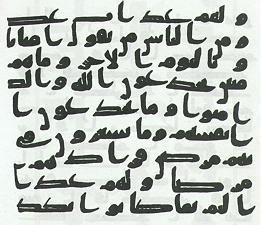 و لهم عذاب عظيم
و من الناس من يقول امنا با
لله و باليوم الاخر و ما هم
بمومنين يخدعون الله و الذ
ين امنوا و ما يخدعون ا
لا انفسهم و ما يشعرون في
قلوبهم مرض فزادهم ا
لله مرضا و لهم عذاب ا
ليم بما كانوا يكذبون